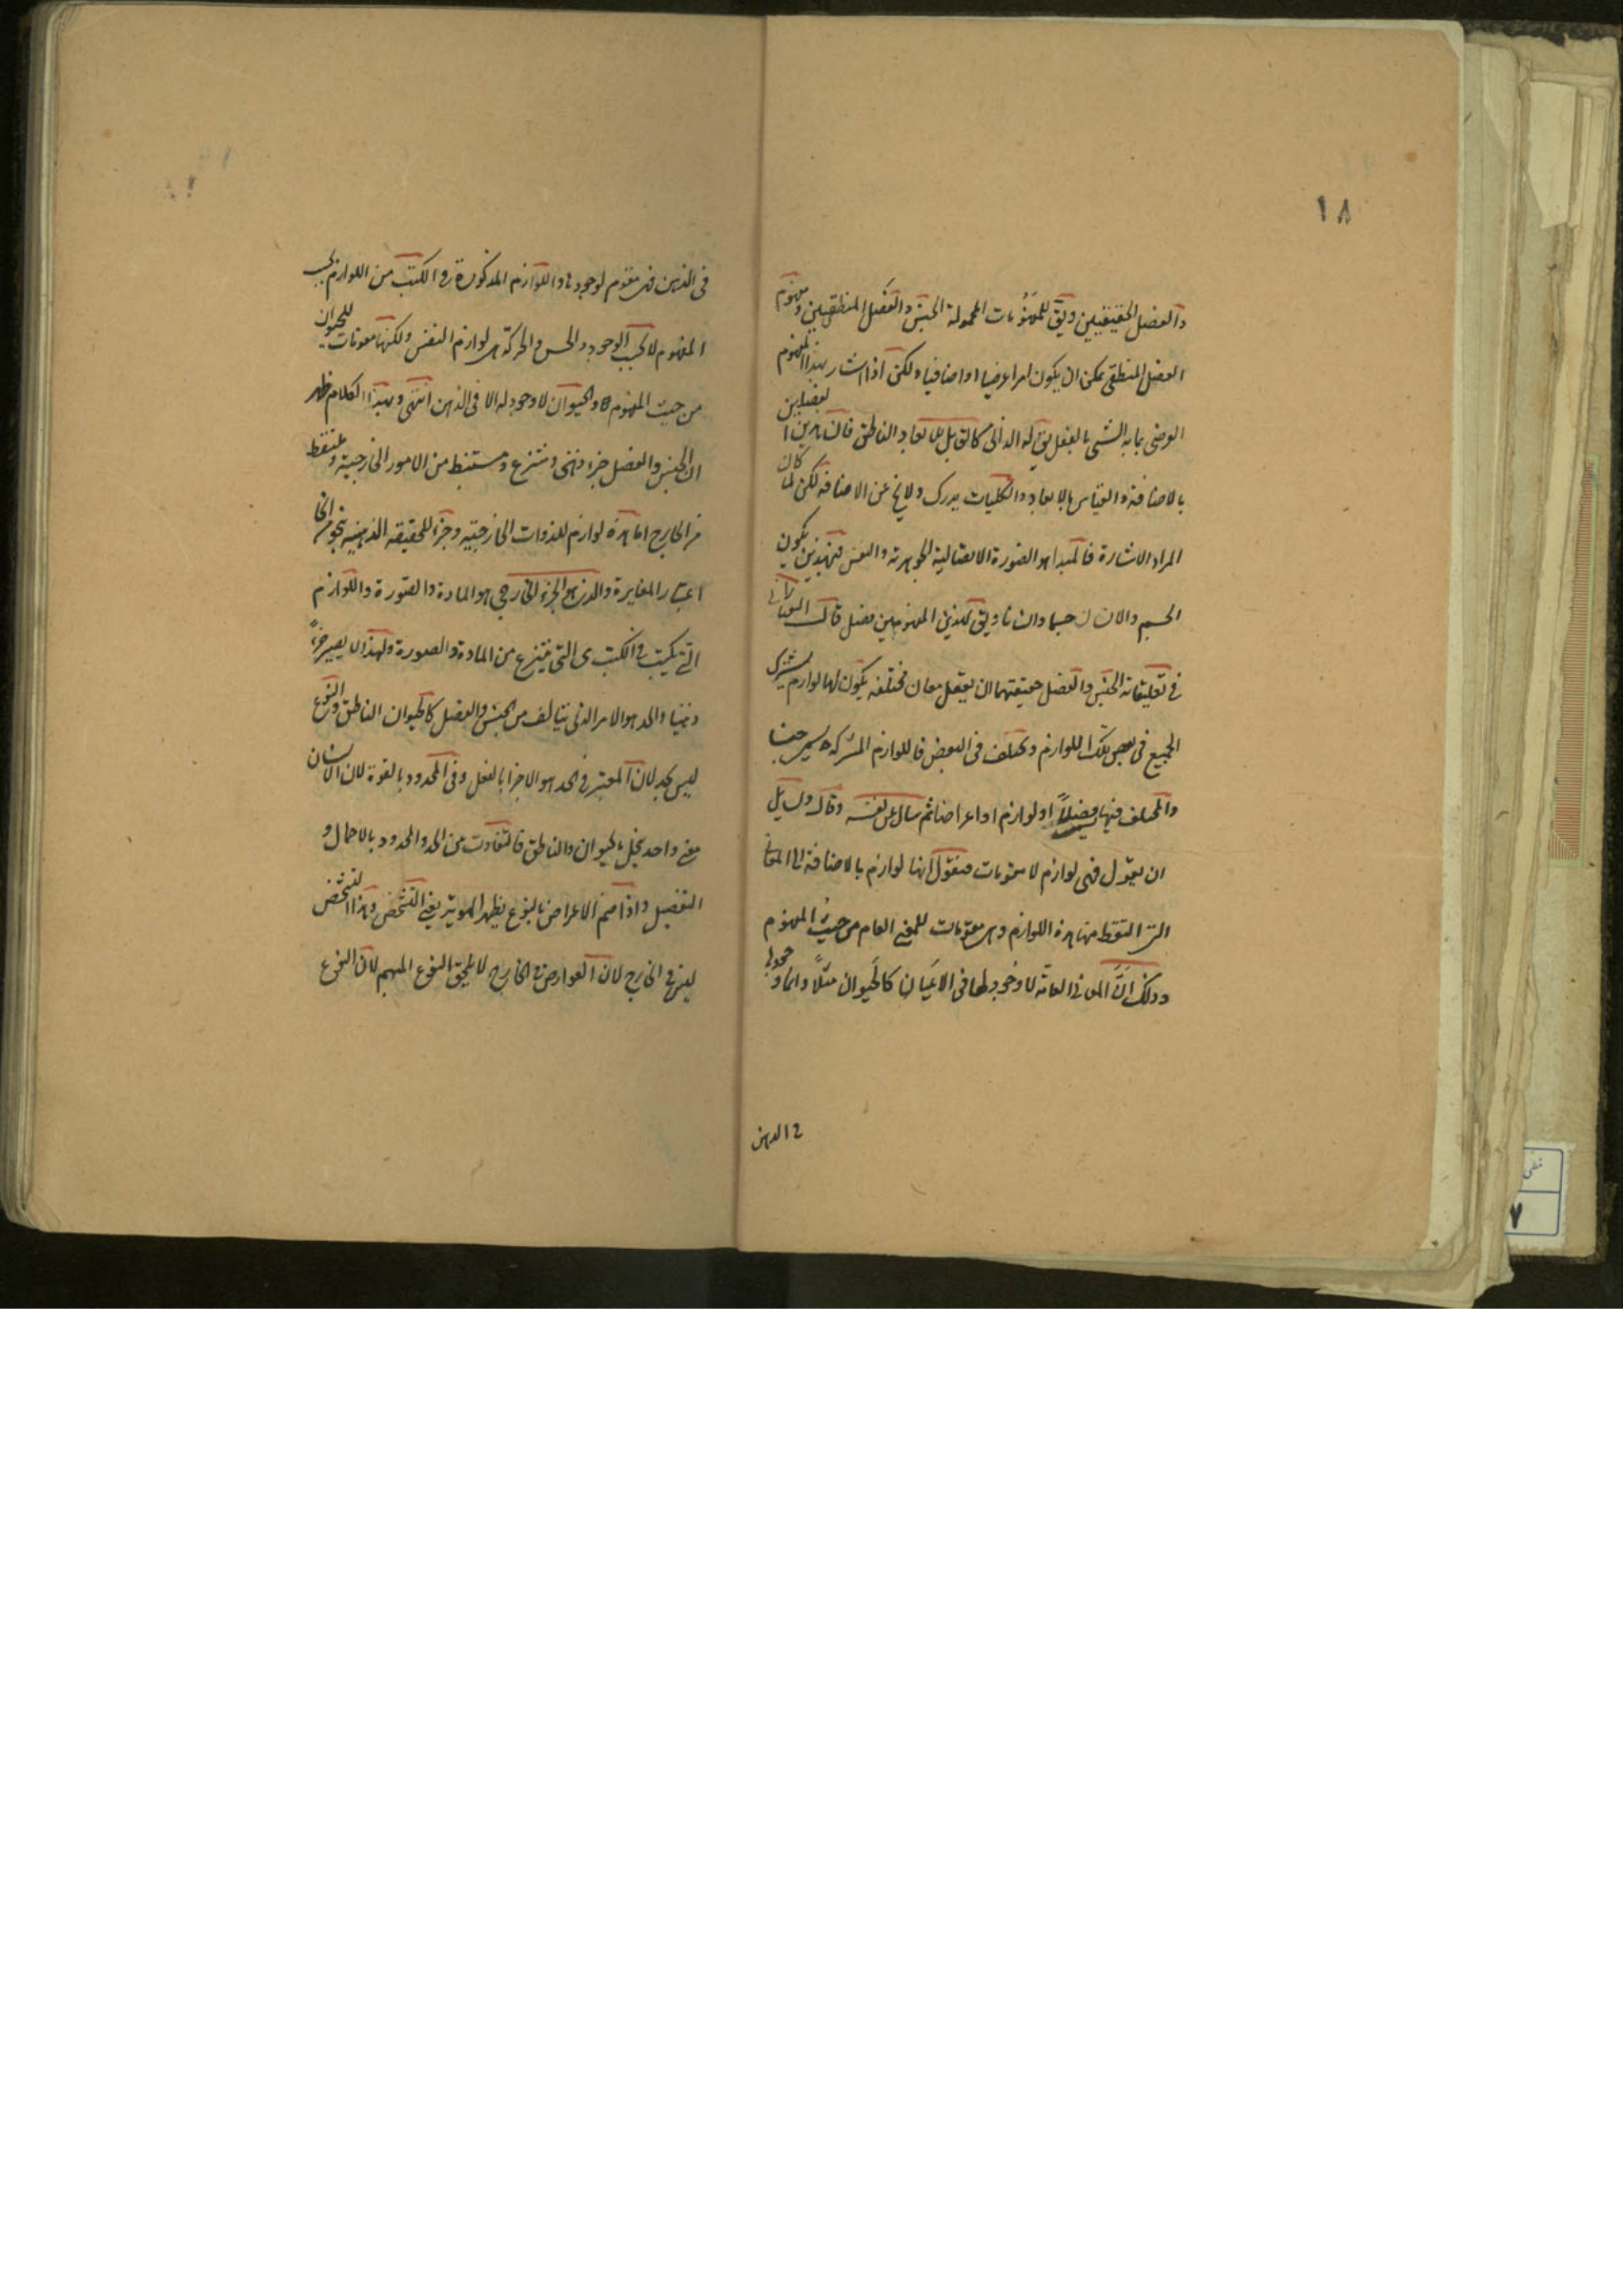 ١٨
والفصل الحقيقيين ويق للمفهومات المحمولة الجنس والفصل المنطقيين ومفهوم
الفصل المنطقي يمكن ان يكون امرا عرضيا او اضافيا ولكن اذا اشار بهذا المفهوم
العرضى بما به الشى بالفعل يق له الذاتى كالقابل للابعاد والناطق فان هذين الفصلين
بالاضافة والقياس بالابعاد والكليات يدرك ولا يخ عن الاضافة لكن لما كان
المراد الاشارة فالمبدا هو الصورة الاتصالية الجوهرية والنفس فبهذين يكون
الجسم والانسان جسما وانسانا ويق لهذين المفهومين فصل قال الفارابى
فى تعليقاته الجنس والفصل حقيقتهما ان يعقل معان مختلفه يكون لها لوازم يشترك
الجميع فى بعض تلك اللوازم ويختلف فى البعض فاللوازم المشتركة يسمى جنسا
والمختلف فيها فصلاً او لوازم او اعراضا ثم سال عن نفسه وقال ولسايل
ان يقول فهى لوازم لا مقومات فنقول انها لوازم بالاضافة الى المعانى
التى التقط منها هذه اللوازم وهى مقومات للمعنى العام من حيث المفهوم
وذلك انَّ المعانى العامّة لا وجود لها فى الاعيان كالحيوان مثلاً وانما وجودها
فى الذهن
فى الذهن فهى مقوم لوجودها واللوازم المذكورة فى الكتب من اللوازم بحسب
المفهوم لا بحسب الوجود والحس والحركة هى لوازم النفس ولكنها مقومات للحيوان
من حيث المفهوم والحيوان لا وجود له الا فى الذهن انتهى وبهذا الكلام ظهر
ان الجنس والفصل جزء ذهنى ومنتزع ومستنبط من الامور الخارجية وملتقط
من الخارج اما هذه لوازم للذوات الخارجية وجزء للحقيقه الذهنيه بنحو من انحا
اعتبار المغايرة والذى هو الجزء الخارجى هو المادة والصورة واللوازم
التى يكتب فى الكتب هى التى ينتزع من المادة والصورة ولهذا لا يصير جزءاً
ذهنيا والحد هو الامر الذى يتالف من الجنس والفصل كالحيوان الناطق والنوع
ليس بحد لان المعتبر فى الحد هو الاجزا بالفعل وفى المحدود بالقوة لان الانسان
معنى واحد يحلل بالحيوان والناطق فالتفاوت من الحد والمحدود بالاجمال و
التفصيل واذا ضم الاعراض بالنوع يظهر الهوية يعنى التشخص وهذا التشخص
ليس فى الخارج لان العوارض فى الخارج لا يلحق النوع المبهم لان النوع